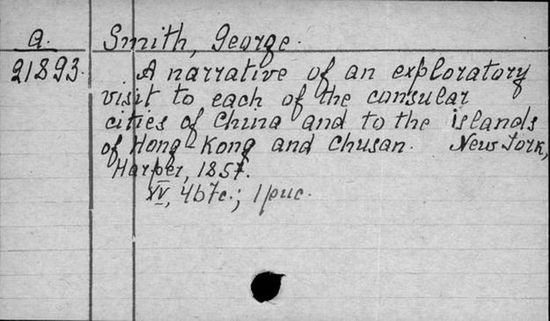 a. Smith, George.
21893. A narrative of an exploratory
visit to each of the consular
cities of China and to the islands
of Hong-Kong and Chusan. New York,
Harper, 1857.
XV, 467c.; 1 рис.